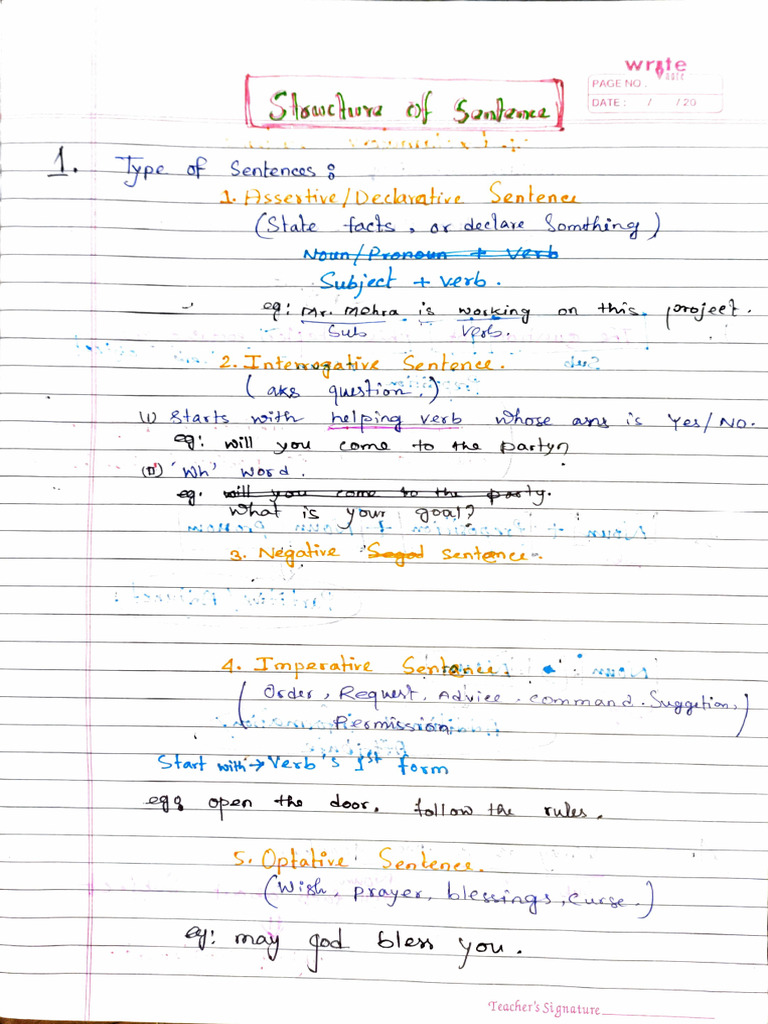 write
note
PAGE NO.
DATE: / /20
Structure of Sentence
1. Type of Sentences:
1. Assertive/Declarative Sentence
(State facts, or declare Somthing)
Noun/Pronoun + Verb
Subject + verb.
eg: Mr. Mehra is working on this project.
Sub Verb.
2. Interrogative Sentence.
(aks question.)
(I) Starts with helping verb whose ans is Yes/No.
eg: will you come to the party?
(II) 'Wh' word.
eg. will you come to the party.
What is your goal?
3. Negative sentence.
4. Imperative Sentence.
(Order, Request, Advice. command. Suggetion,
Permission)
Start with → Verb's 1st form
eg: open the door. follow the rules.
5. Optative Sentence.
(Wish, prayer, blessings, curse.)
eg: may god bless you.
Teacher's Signature